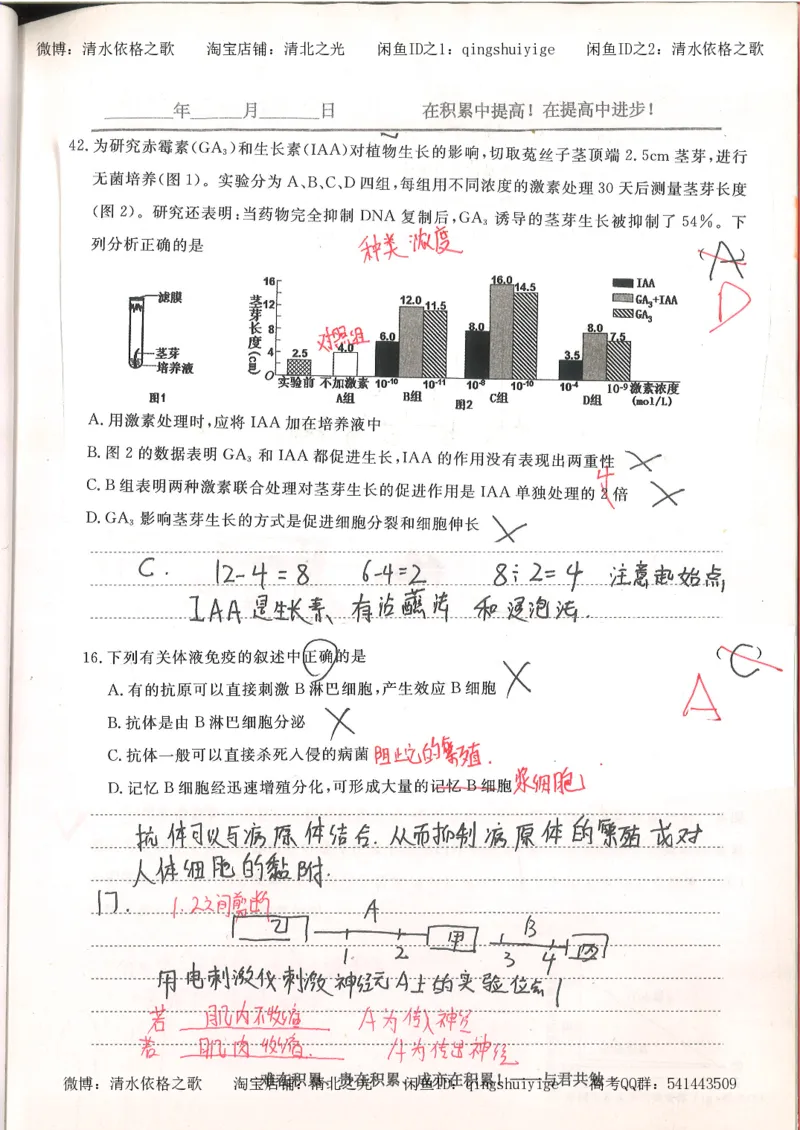 微博：清水依格之歌 淘宝店铺：清北之光 闲鱼ID之1：qingshuiyige 闲鱼ID之2：清水依格之歌
______年______月______日 在积累中提高！在提高中进步！
42.为研究赤霉素(GA₃)和生长素(IAA)对植物生长的影响,切取菟丝子茎顶端 2.5cm 茎芽,进行
无菌培养(图1)。实验分为 A、B、C、D 四组,每组用不同浓度的激素处理 30 天后测量茎芽长度
(图 2)。研究还表明:当药物完全抑制 DNA 复制后,GA₃ 诱导的茎芽生长被抑制了 54%。下
列分析正确的是
种类 浓度
(A)
D
滤膜
茎芽
培养液
图1
茎芽长度(cm)
16
12
8
4
O
2.5
对照组
4.0
6.0
12.0
11.5
8.0
16.0
14.5
3.5
8.0
7.5
IAA
GA₃+IAA
GA₃
实验前 不加激素 10⁻¹⁰ 10⁻¹¹ 10⁻⁸ 10⁻¹⁰ 10⁻⁴ 10⁻⁹ 激素浓度
A组 B组 C组 D组 (mol/L)
图2
A.用激素处理时,应将 IAA 加在培养液中
B.图 2 的数据表明 GA₃ 和 IAA 都促进生长,IAA 的作用没有表现出两重性
C.B组表明两种激素联合处理对茎芽生长的促进作用是 IAA 单独处理的 2 倍
4
D.GA₃ 影响茎芽生长的方式是促进细胞分裂和细胞伸长
C. 12-4=8 6-4=2 8÷2=4 注意起始点
IAA是生长素 有沾蘸法 和浸泡法.
16.下列有关体液免疫的叙述中正确的是
(C)
A
A.有的抗原可以直接刺激 B 淋巴细胞,产生效应 B 细胞
B.抗体是由 B 淋巴细胞分泌
C.抗体一般可以直接杀死入侵的病菌 阻止它的繁殖.
D.记忆 B 细胞经迅速增殖分化,可形成大量的记忆 B 细胞 浆细胞
抗体可以与病原体结合.从而抑制病原体的繁殖或对
人体细胞的黏附.
17. 1.2之间剪断
乙 A 甲 B 丙
1 2 3 4
用电刺激仪刺激神经元A上的实验位点1
若 肌肉不收缩 A为传入神经
若 肌肉收缩. A为传出神经
难在积累、贵在积累、成亦在积累！——与君共勉
微博：清水依格之歌 淘宝店铺：清北之光 闲鱼ID：qingshuiyige 高考QQ群：541443509